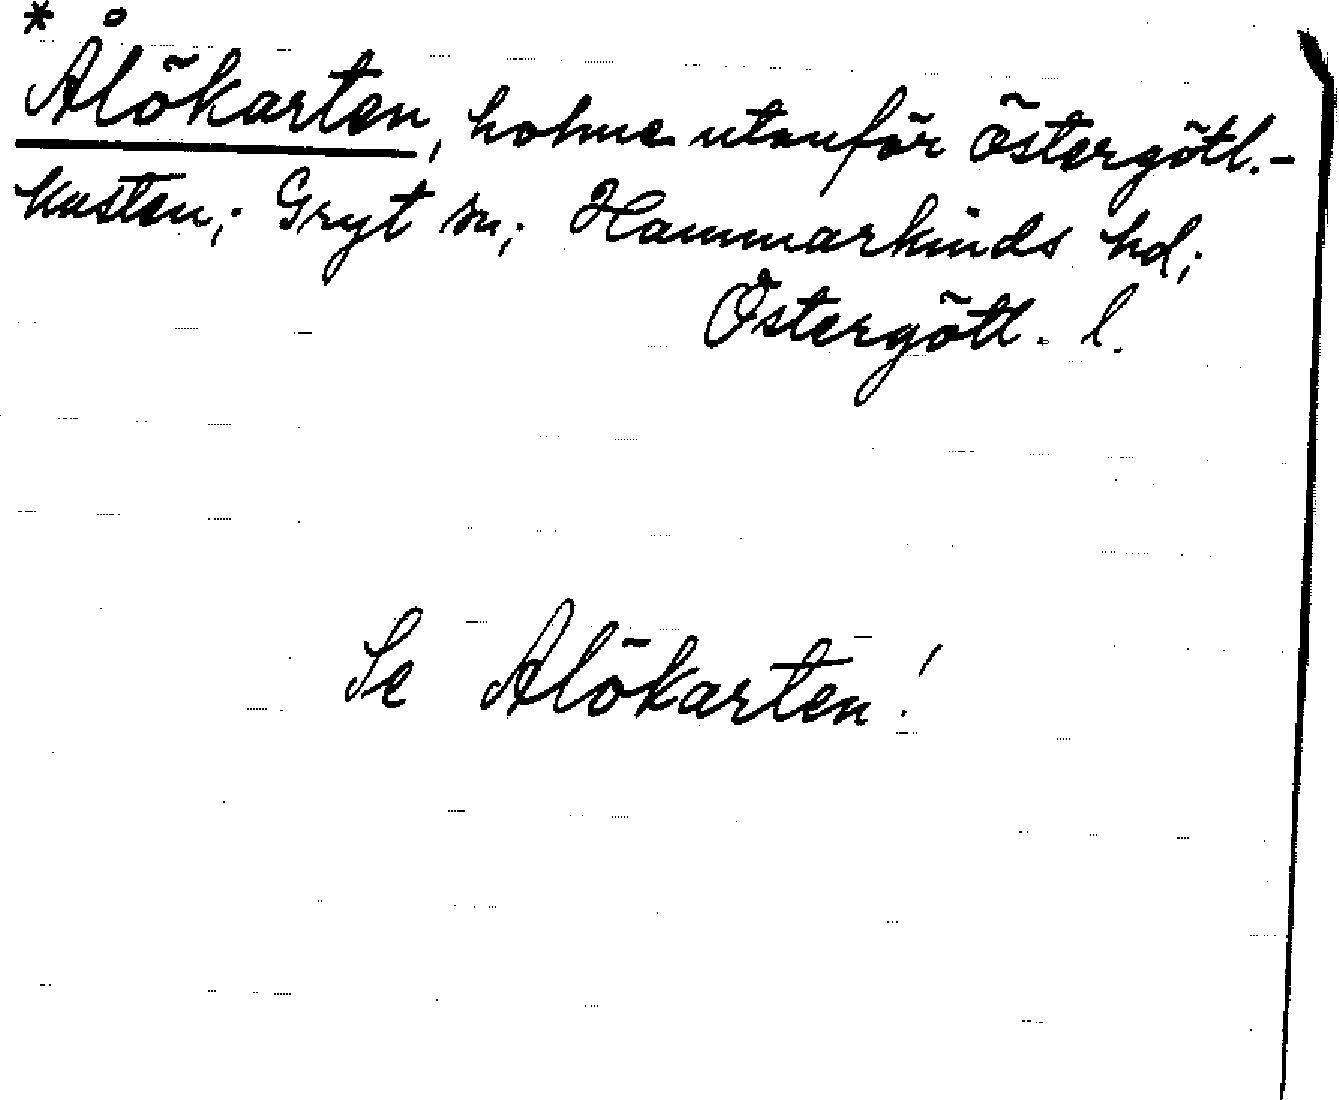 * Ålökarten, holme utanför Östergötl.-
kusten; Gryt sn; Hammarkinds hd;
Östergötl. l.
Se Alökarten!